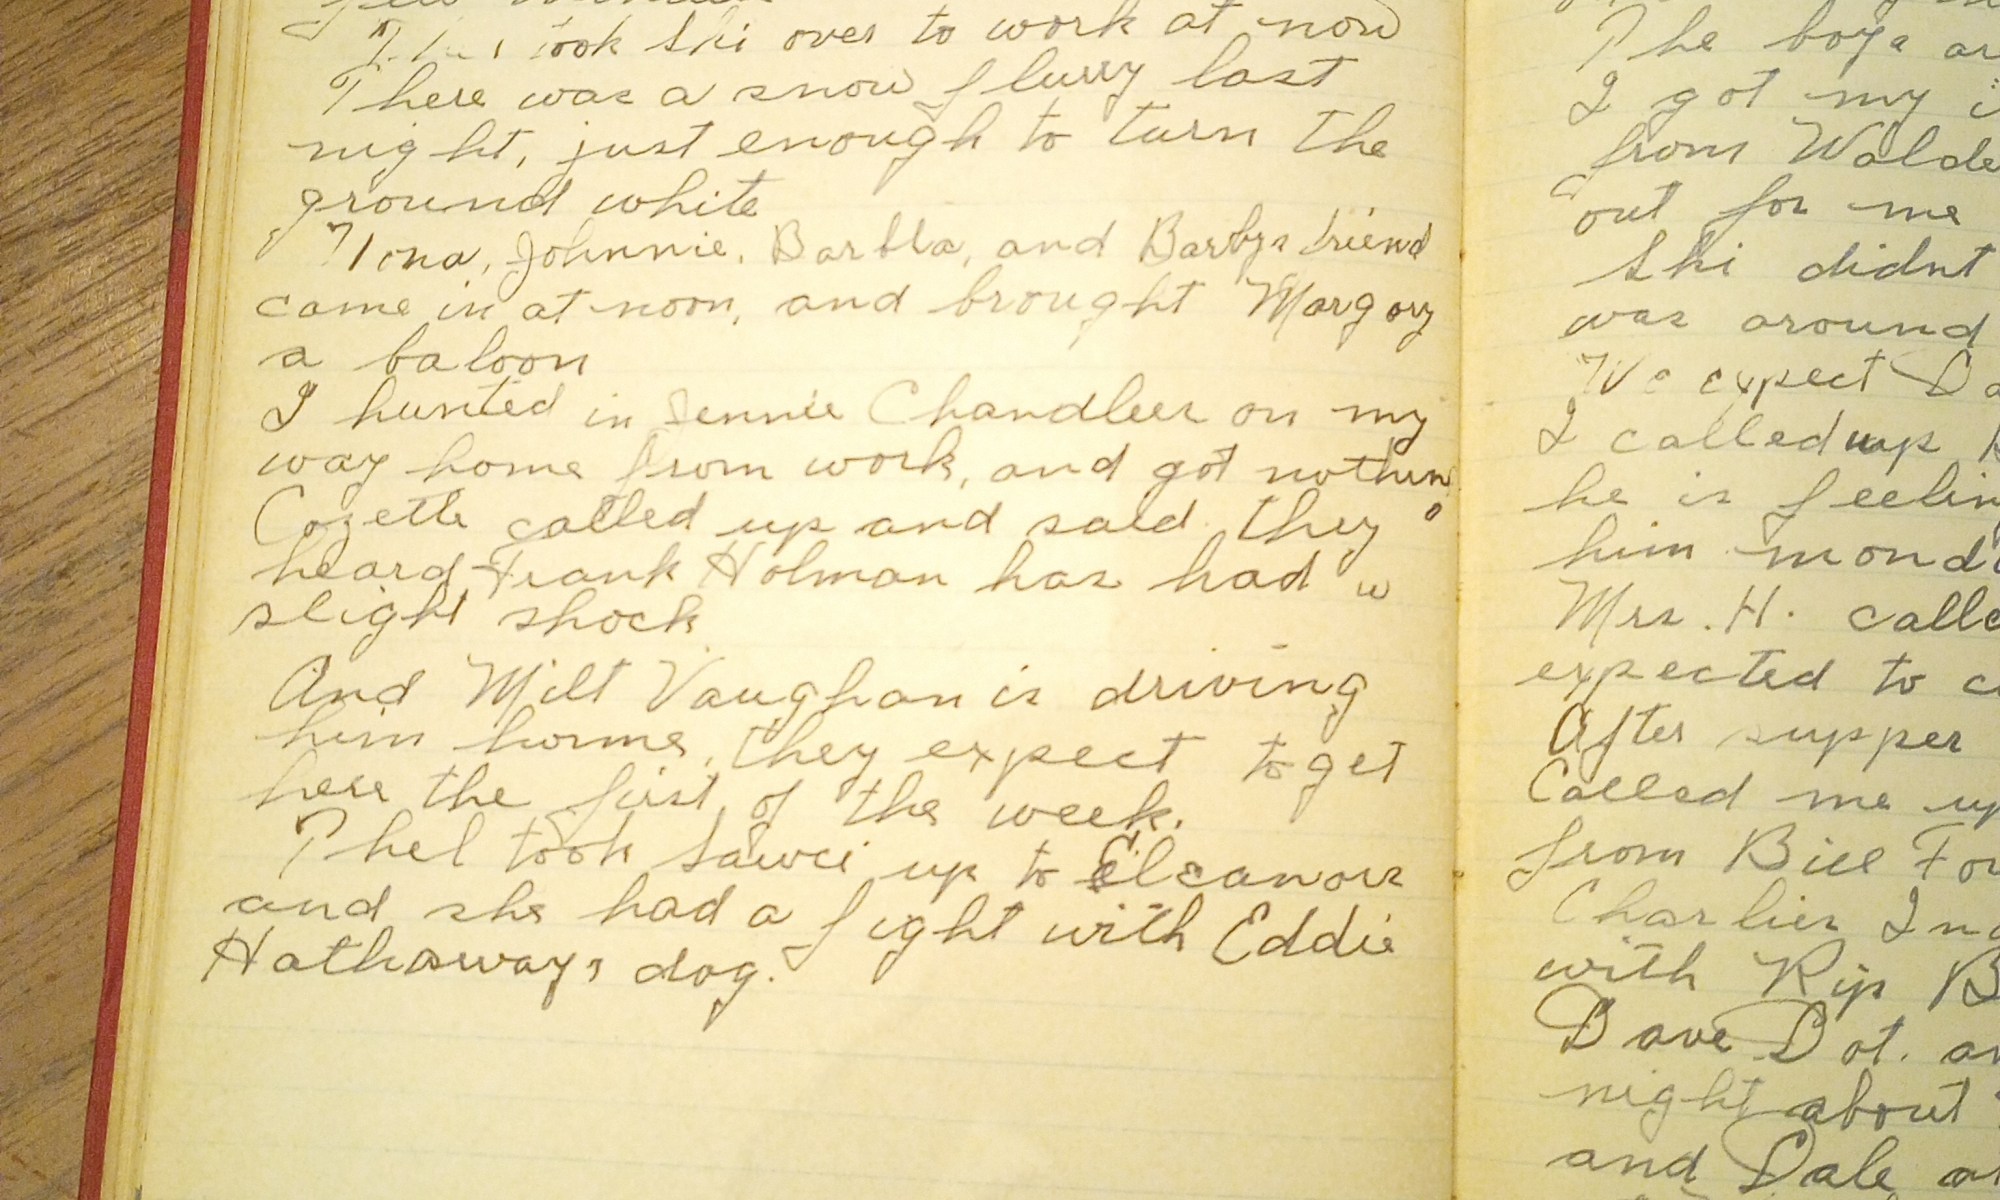 took Ski over to work at now
There was a snow flurry last
night, just enough to turn the
ground white
Nona, Johnnie, Barbla, and Barbys friend
came in at noon, and brought Margory
a baloon
I hunted in Jennie Chandlers on my
way home from work, and got nothing
Cozette called up and said they
heard Frank Holman has had a
slight shock
And Milt Vaughan is driving
him home, they expect to get
here the first of the week.
Phel took Sawci up to Eleanors
and she had a fight with Eddie
Hathaways dog.
The boys
I got my
from
out for me
Ski didnt
was around
We expect
I called up
he is
him
Mrs. H.
expected to
After supper
Called me up
from Bill
Charlies
with Rip
Dave Dot.
night about
and Dale